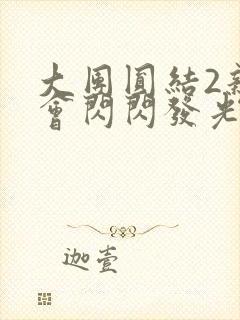 大團圓結2
會閃閃發光
迦壹